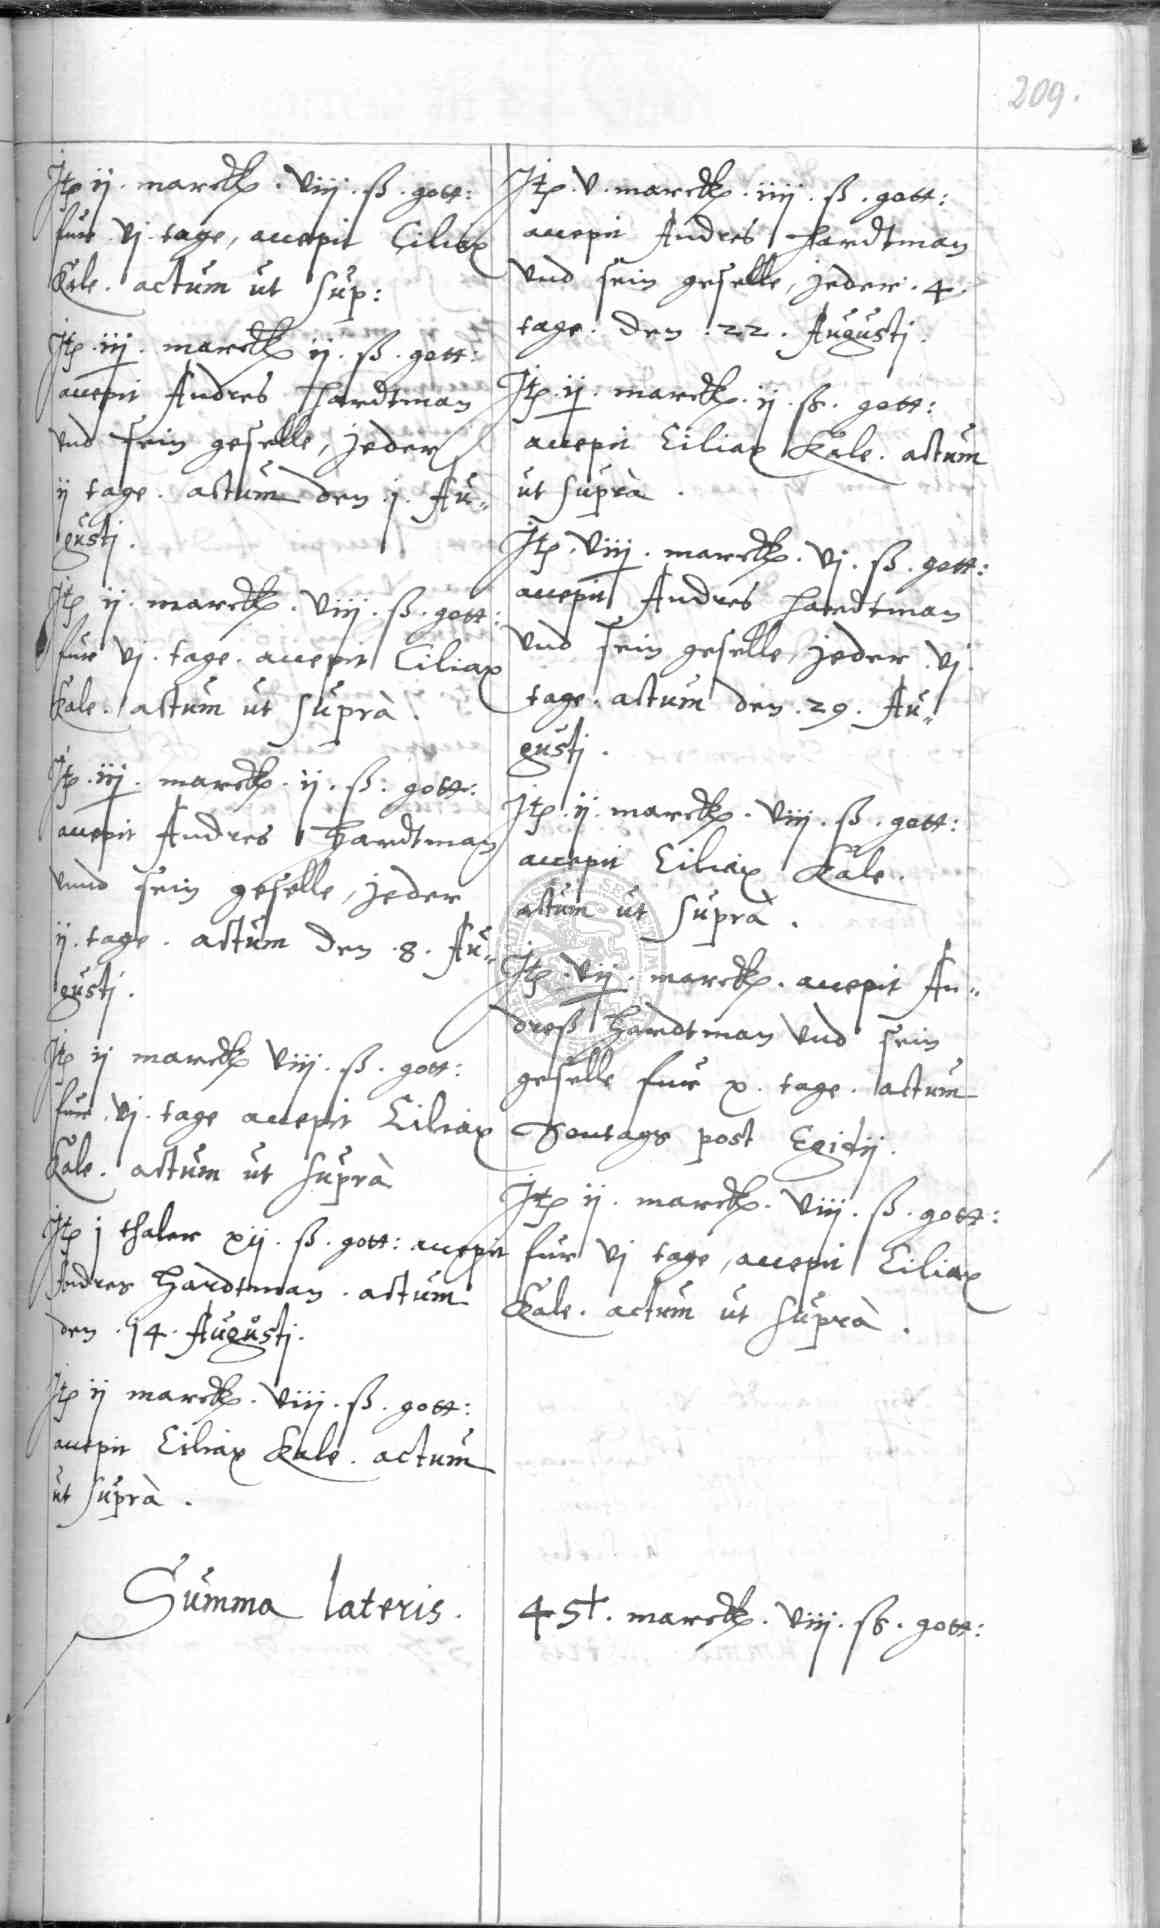 209.
Jtem ij. marckh. viij. ß. gott:
fur vj. tage, accepit Ciliax
Kale. actum ut sup:
Jtem. iij. marckh ij. ß. gott:
accepit Andres Hardtman
vnd sein geselle, jeder
ij tage. actum den. j. Au„
gustj.
Jtem ij. marckh. viij. ß. gott:
fur vj. tage. accepit Ciliax
Kale. actum ut suprà.
Jtem. iij. marckh. ij. ß: gott:
accepit Andres Hardtman
vnnd sein geselle, jeder
ij. tage. actum den. 8. Au„
gustj.
Jtem ij marckh viij. ß. gott:
fur. vj. tage accepit Ciliax
Kale. actum ut suprà
Jtem j thaler xij. ß. gott: accepit
Andres Hardtman. actum
den. 14. Augustj.
Jtem ij marckh. viij. ß. gott:
accepit Ciliax Kale. actum
ut suprà.
Jtem. v. marckh. iiij. ß. gott:
accepit Andres Hardtman
vnd sein geselle, jeder. 4.
tage. den. 22. Augustj.
Jtem. ij. marckh. ij. ß. gott:
accepit Ciliax Kale. actum
ut suprà.
Jtem. viij. marckh. vj. ß. gott:
accepit Andres Hardtman
vnd sein geselle, jeder. vj.
tage. actum den. 29. Au„
gustj.
Jtem. ij. marckh. viij. ß. gott:
accepit Ciliax Kale.
actum ut suprà.
Jtem. vij. marckh. accepit An„
dreß Hardtman vnd sein
geselle fur x. tage. actum
Sontags post Egidij.
Jtem ij. marckh. viij. ß. gott:
fur vj tage, accepit Ciliax
Kale. actum ut suprà.
Summa lateris. 45†. marckh. viij. ß. gott: